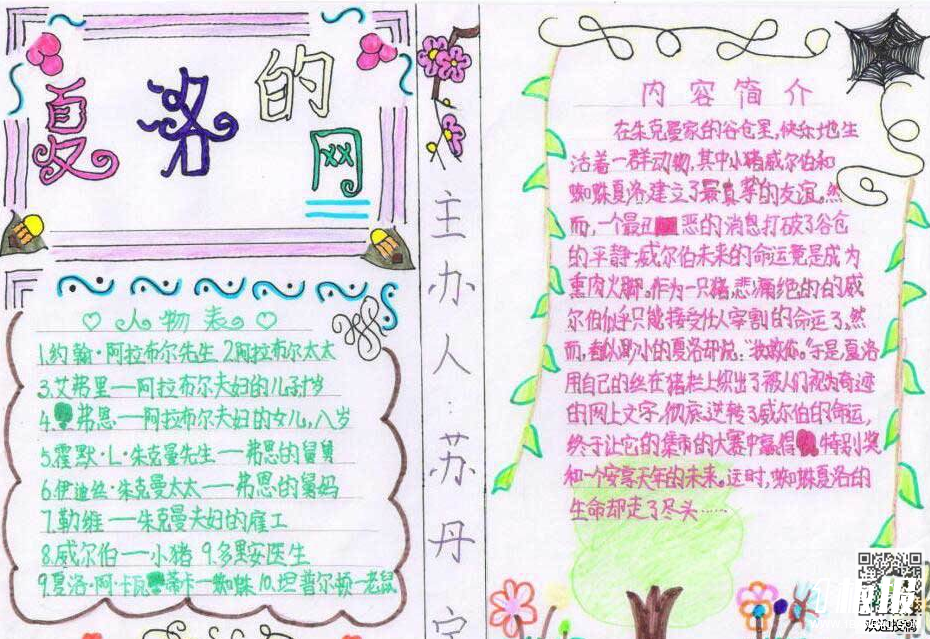 夏洛的网
人物表
1.约翰·阿拉布尔先生 2.阿拉布尔太太
3.艾弗里——阿拉布尔夫妇的儿子十岁
4.弗恩——阿拉布尔夫妇的女儿,八岁
5.霍默·L·朱克曼先生——弗恩的舅舅
6.伊迪丝·朱克曼太太——弗恩的舅妈
7.勒维——朱克曼夫妇的雇工
8.威尔伯——小猪 9.多里安医生
9.夏洛·阿·卡瓦蒂卡—蜘蛛 10.坦普尔顿—老鼠
主办人:苏丹宁
内容简介
在朱克曼家的谷仓里,快乐地生
活着一群动物,其中小猪威尔伯和
蜘蛛夏洛建立了最真挚的友谊。然
而,一个最丑恶的消息打破了谷仓
的平静:威尔伯未来的命运竟是成为
熏肉火腿。作为一只猪,悲痛绝的的威
尔伯似乎只能接受任人宰割的命运了,然
而,看似渺小的夏洛却说:"我救你。"于是,夏洛
用自己的丝在猪栏上织出了被人们视为奇迹
的网上文字,彻底逆转了威尔伯的命运,
终于让它的集市的大赛中赢得特别奖
和一个安享天年的未来。这时,蜘蛛夏洛的
生命却走了尽头……